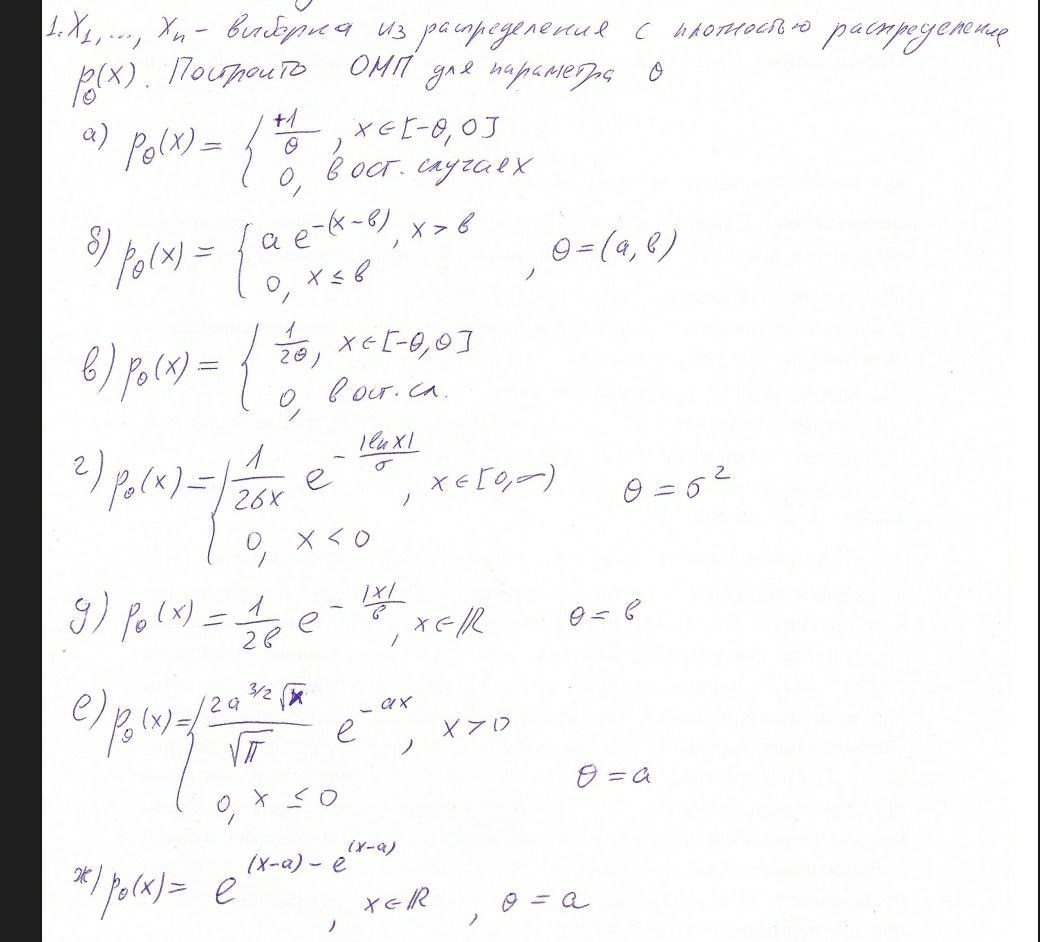 1. X₁, ..., Xₙ - выборка из распределения с плотностью распределение
p_θ(x). Построить ОМП для параметра θ
а) p_θ(x) = { +1/θ , x ∈ [-θ, 0]
0, в ост. случаях
б) p_θ(x) = { a e^{-(x-в)}, x > в , θ = (a, в)
0, x ≤ в
в) p_θ(x) = { 1/2θ, x ∈ [-θ, θ]
0, в ост. сл.
г) p_θ(x) = { 1/2σx e^{-|ln x|/σ}, x ∈ [0, ∞) θ = σ²
0, x < 0
д) p_θ(x) = 1/2в e^{-|x|/в}, x ∈ ℝ θ = в
е) p_θ(x) = { 2a^{3/2}√x/√π e^{-ax}, x > 0
0, x ≤ 0 θ = a
ж) p_θ(x) = e^{(x-a) - e^{(x-a)}}, x ∈ ℝ, θ = a